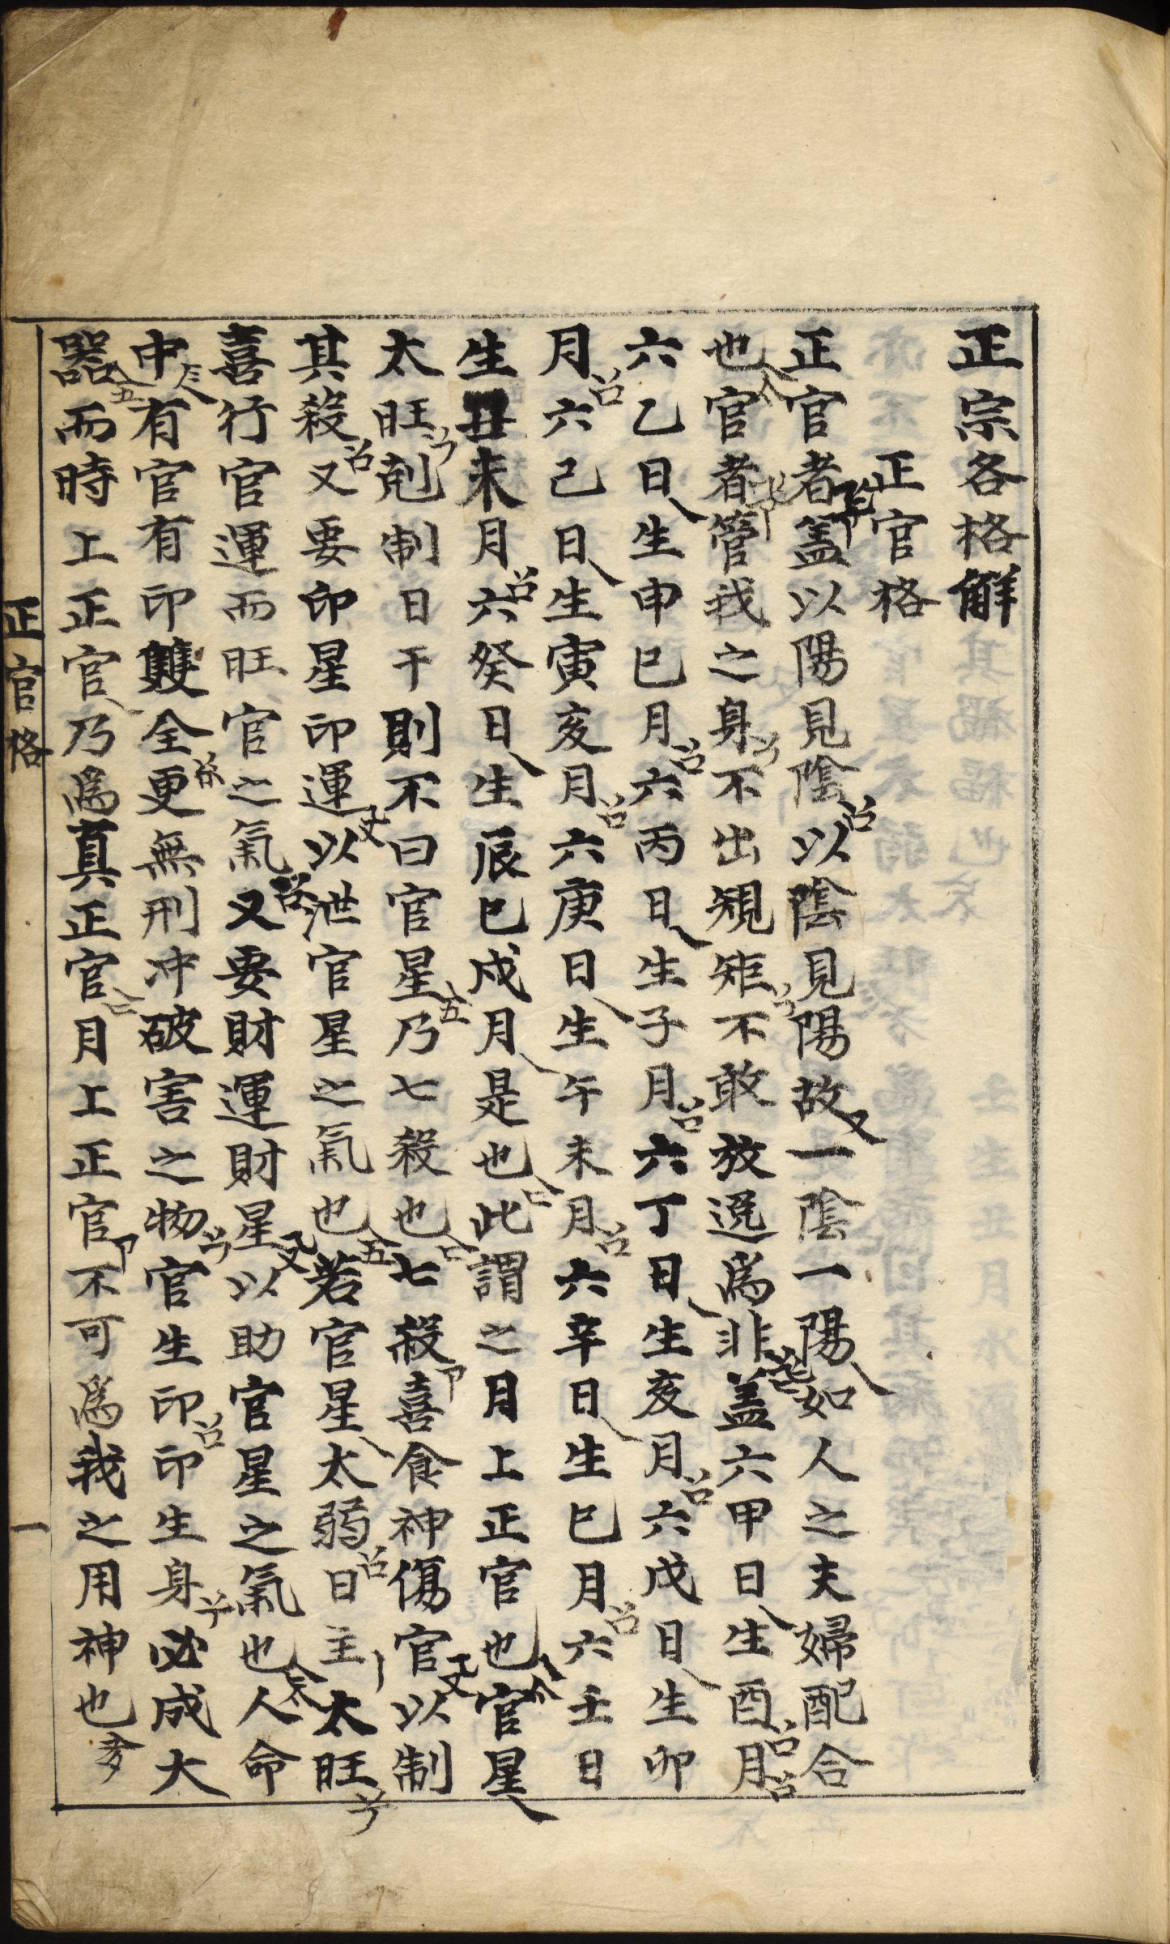 正宗各格觧
正官格
正官者盖以陽見陰以陰見陽故一陰一陽如人之夫婦配合
也官者管我之身不出規矩不敢放逞爲非盖六甲日生酉月
六乙日生申巳月六丙日生子月六丁日生亥月六戊日生卯
月六己日生寅亥月六庚日生午未月六辛日生巳月六壬日
生丑未月六癸日生辰巳戌月是也此謂之月上正官也官星
太旺剋制日干則不曰官星乃七殺也七殺喜食神傷官以制
其殺又要印星印運以泄官星之氣也若官星太弱日主太旺
喜行官運而旺官之氣又要財運財星以助官星之氣也人命
中有官有印雙全更無刑冲破害之物官生印印生身必成大
器而時上正官乃爲真正官月上正官不可爲我之用神也
正官格
一